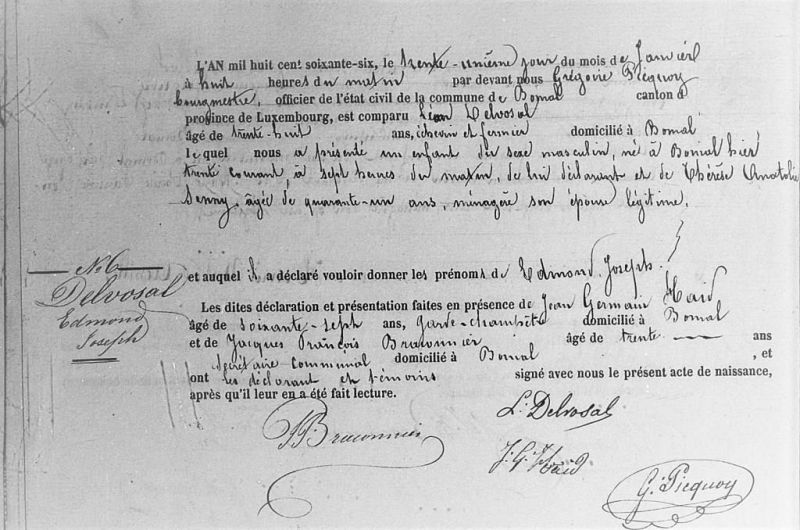 L'AN mil huit cent soixante-six, le trente-unième jour du mois de Janvier
à huit heures du matin par devant nous Grégoire Picquoy
bourgmestre, officier de l'état civil de la commune de Bomal canton d
province de Luxembourg, est comparu Léon Delvosal
âgé de trente-huit ans, échevin et fermier domicilié à Bomal
lequel nous a présenté un enfant du sexe masculin, né à Bomal hier
trente courant, à sept heures du matin, de lui déclarant et de Thérèse Anatolie
Senny, âgée de quarante-un ans, ménagère son épouse légitime,
No. 6
Delvosal
Edmond
Joseph
et auquel il a déclaré vouloir donner les prénoms de Edmond, Joseph.
Les dites déclaration et présentation faites en présence de Jean Germain Haid
âgé de soixante-sept ans, garde-champêtre domicilié à Bomal
et de Jacques François Braconnier âgé de trente ans
secrétaire communal domicilié à Bomal , et
ont les déclarant et témoins signé avec nous le présent acte de naissance,
après qu'il leur en a été fait lecture.
L. Delvosal
J.F. Braconnier
J. G. Haid
G. Picquoy